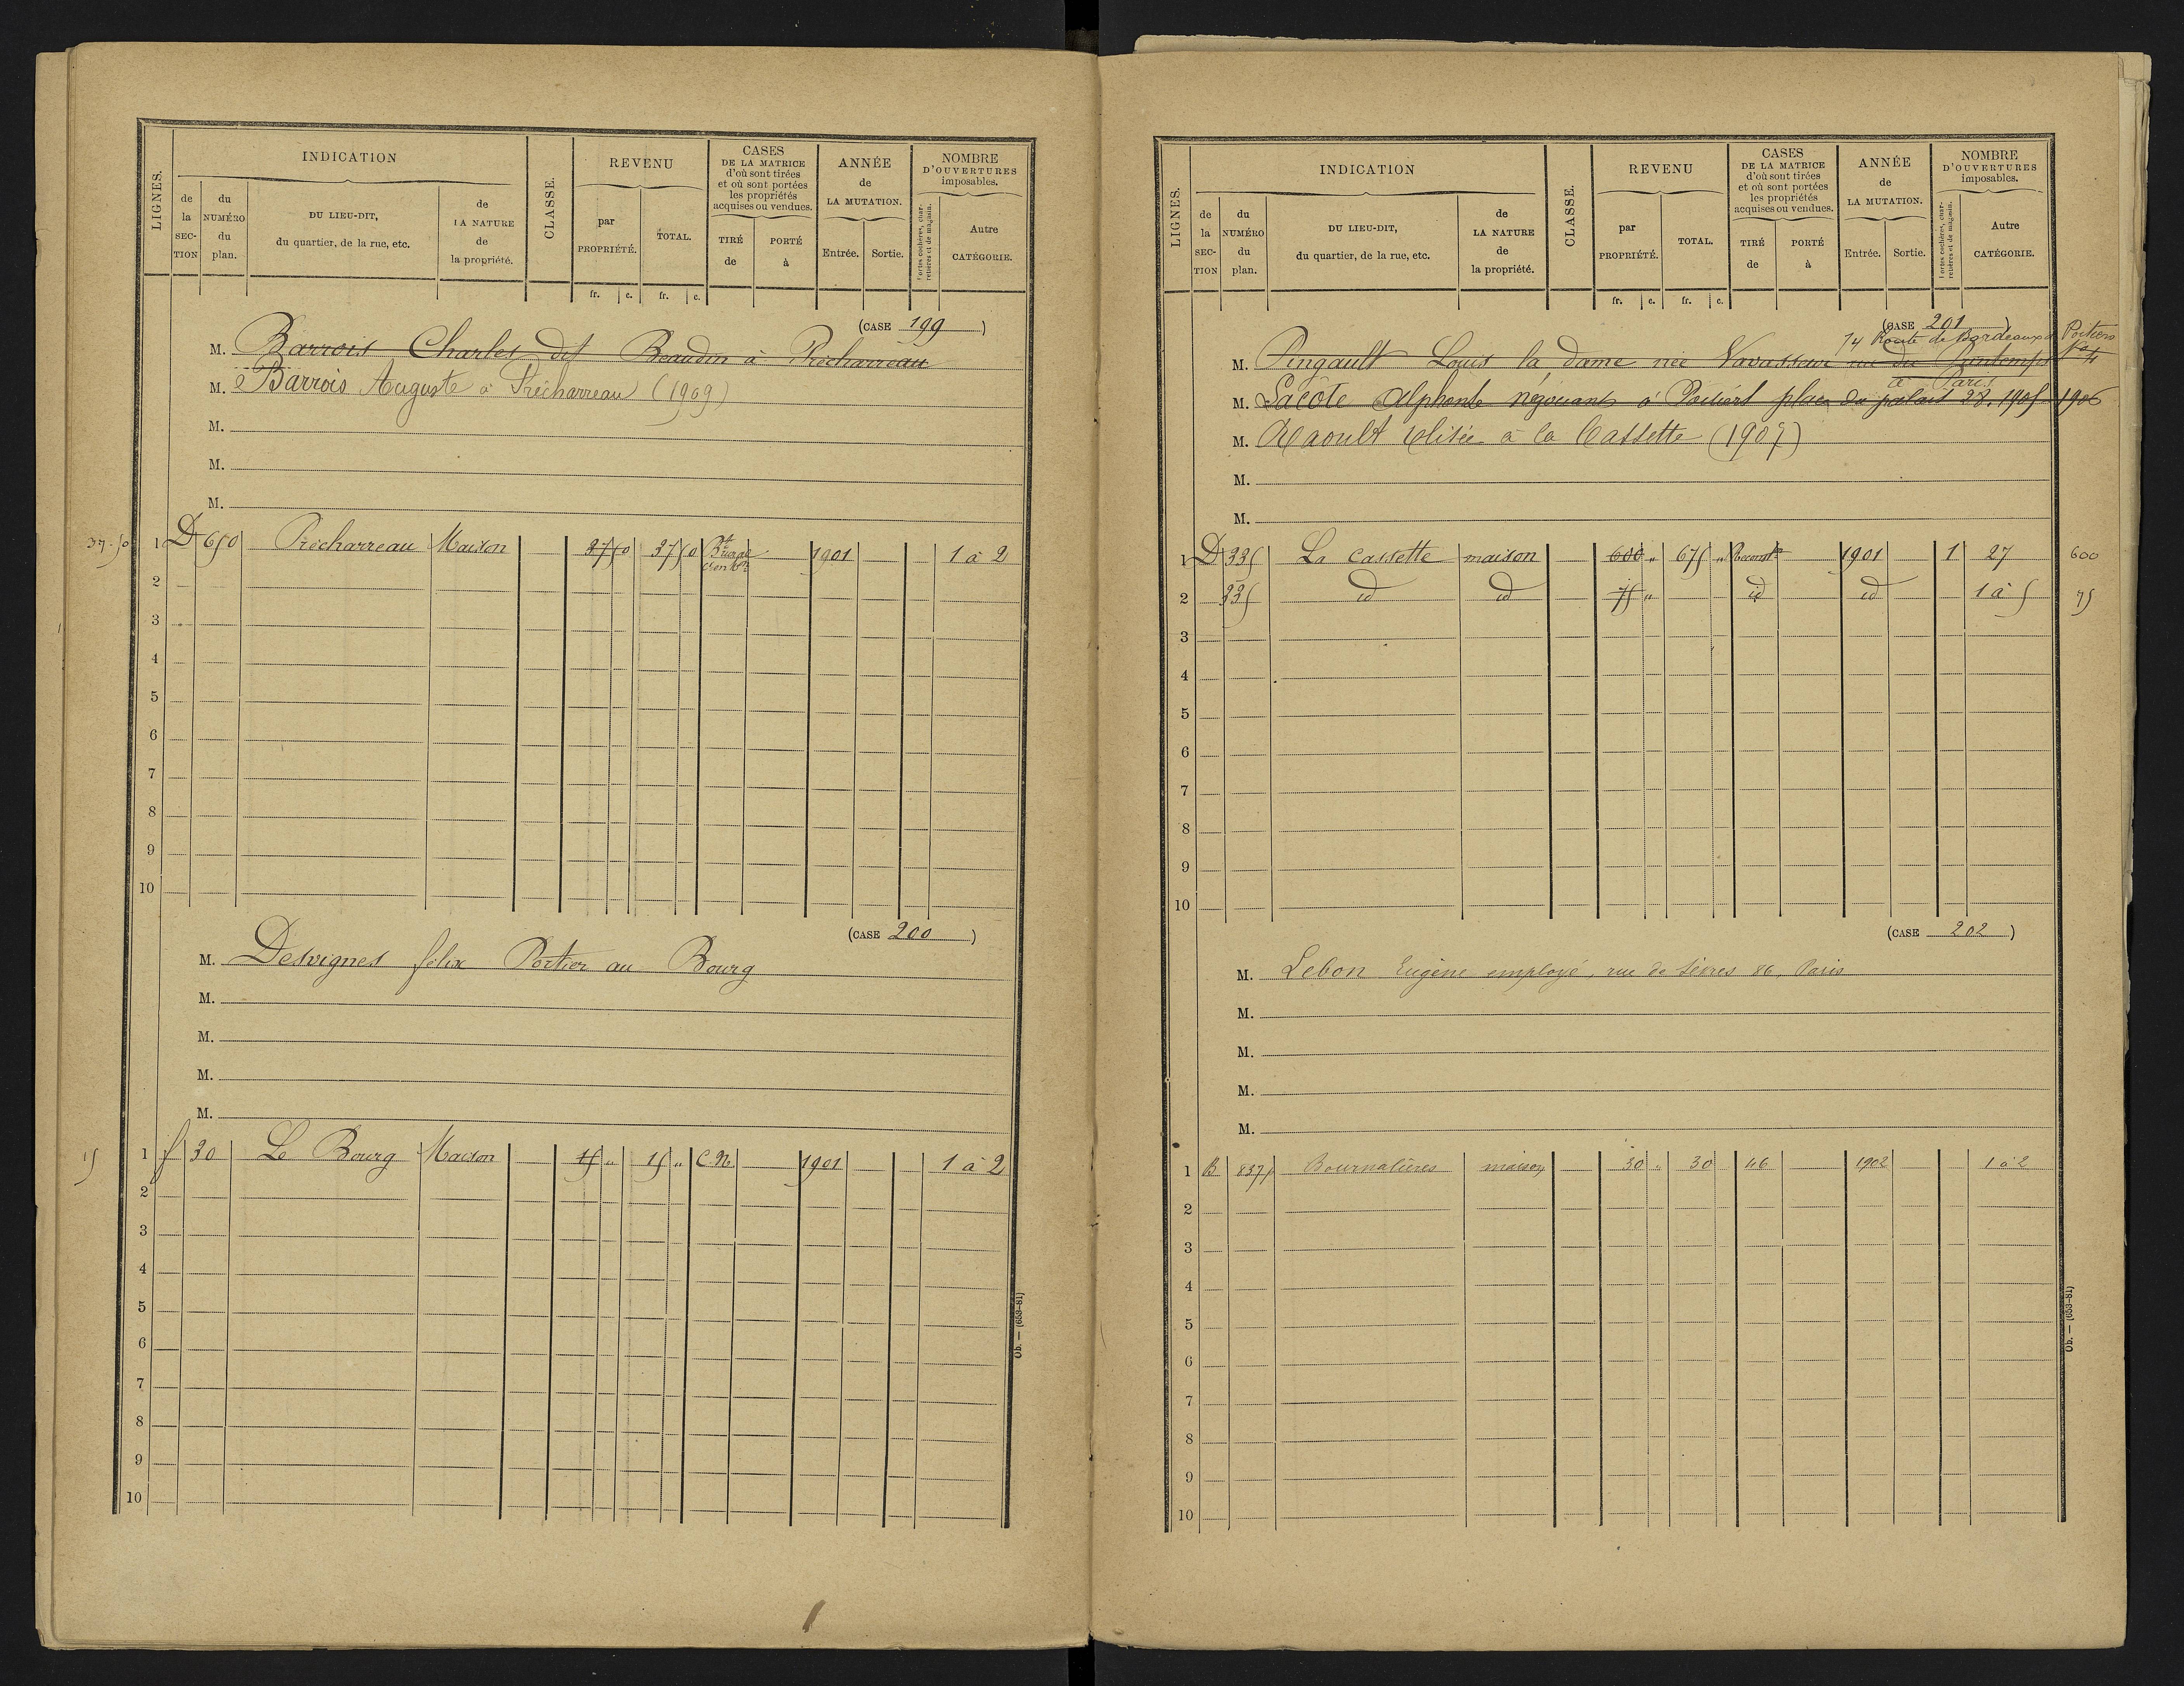 LIGNES.
INDICATION
de la SEC-TION
du NUMÉRO du plan.
DU LIEU-DIT, du quartier, de la rue, etc.
de LA NATURE de la propriété.
CLASSE.
REVENU
par PROPRIÉTÉ.
TOTAL.
CASES DE LA MATRICE d'où sont tirées et où sont portées les propriétés acquises ou vendues.
TIRÉ de
PORTÉ à
ANNÉE de LA MUTATION.
Entrée.
Sortie.
NOMBRE D'OUVERTURES imposables.
Portes cochères, charretières et de magasin.
Autre CATÉGORIE.
fr. c. fr. c.
(CASE 199)
M. Barrois Charles dit Beaudin à Précharreau
M. Barrois Auguste à Précharreau (1909)
M.
M.
M.
37.50 1 D 650 Précharreau Maison 37 50 37 50 1901 1 à 2
2
3
4
5
6
7
8
9
10
(CASE 200)
M. Desvignes félix Portier au Bourg
M.
M.
M.
M.
15 1 f 30 Le Bourg Maison 15 " 15 " C.N. 1901 1 à 2
2
3
4
5
6
7
8
9
10
Ob. — (653-81)
LIGNES.
INDICATION
de la SEC-TION
du NUMÉRO du plan.
DU LIEU-DIT, du quartier, de la rue, etc.
de LA NATURE de la propriété.
CLASSE.
REVENU
par PROPRIÉTÉ.
TOTAL.
CASES DE LA MATRICE d'où sont tirées et où sont portées les propriétés acquises ou vendues.
TIRÉ de
PORTÉ à
ANNÉE de LA MUTATION.
Entrée.
Sortie.
NOMBRE D'OUVERTURES imposables.
Portes cochères, charretières et de magasin.
Autre CATÉGORIE.
fr. c. fr. c.
(CASE 201)
74 Route de Bordeaux à Poitiers
M. Pingault Louis la dame née Vavasseur rue du Printemps
à Paris
M. Lacôte Alphonse négociant à Poitiers place du palais 28. 1905 1906
M. Raoult Elisée à la Cassette (1907)
M.
M.
1 D 335 La Cassette maison 600 " 675 " 1901 1 27 600
2 335 id id 75 " id id 1 à 5 75
3
4
5
6
7
8
9
10
(CASE 202)
M. Lebon Eugène employé, rue de Sèvres 86, Paris
M.
M.
M.
M.
1 B 837 Bournalières maison 30 " 30 46 1902 1 à 2
2
3
4
5
6
7
8
9
10
Ob. — (653-81)